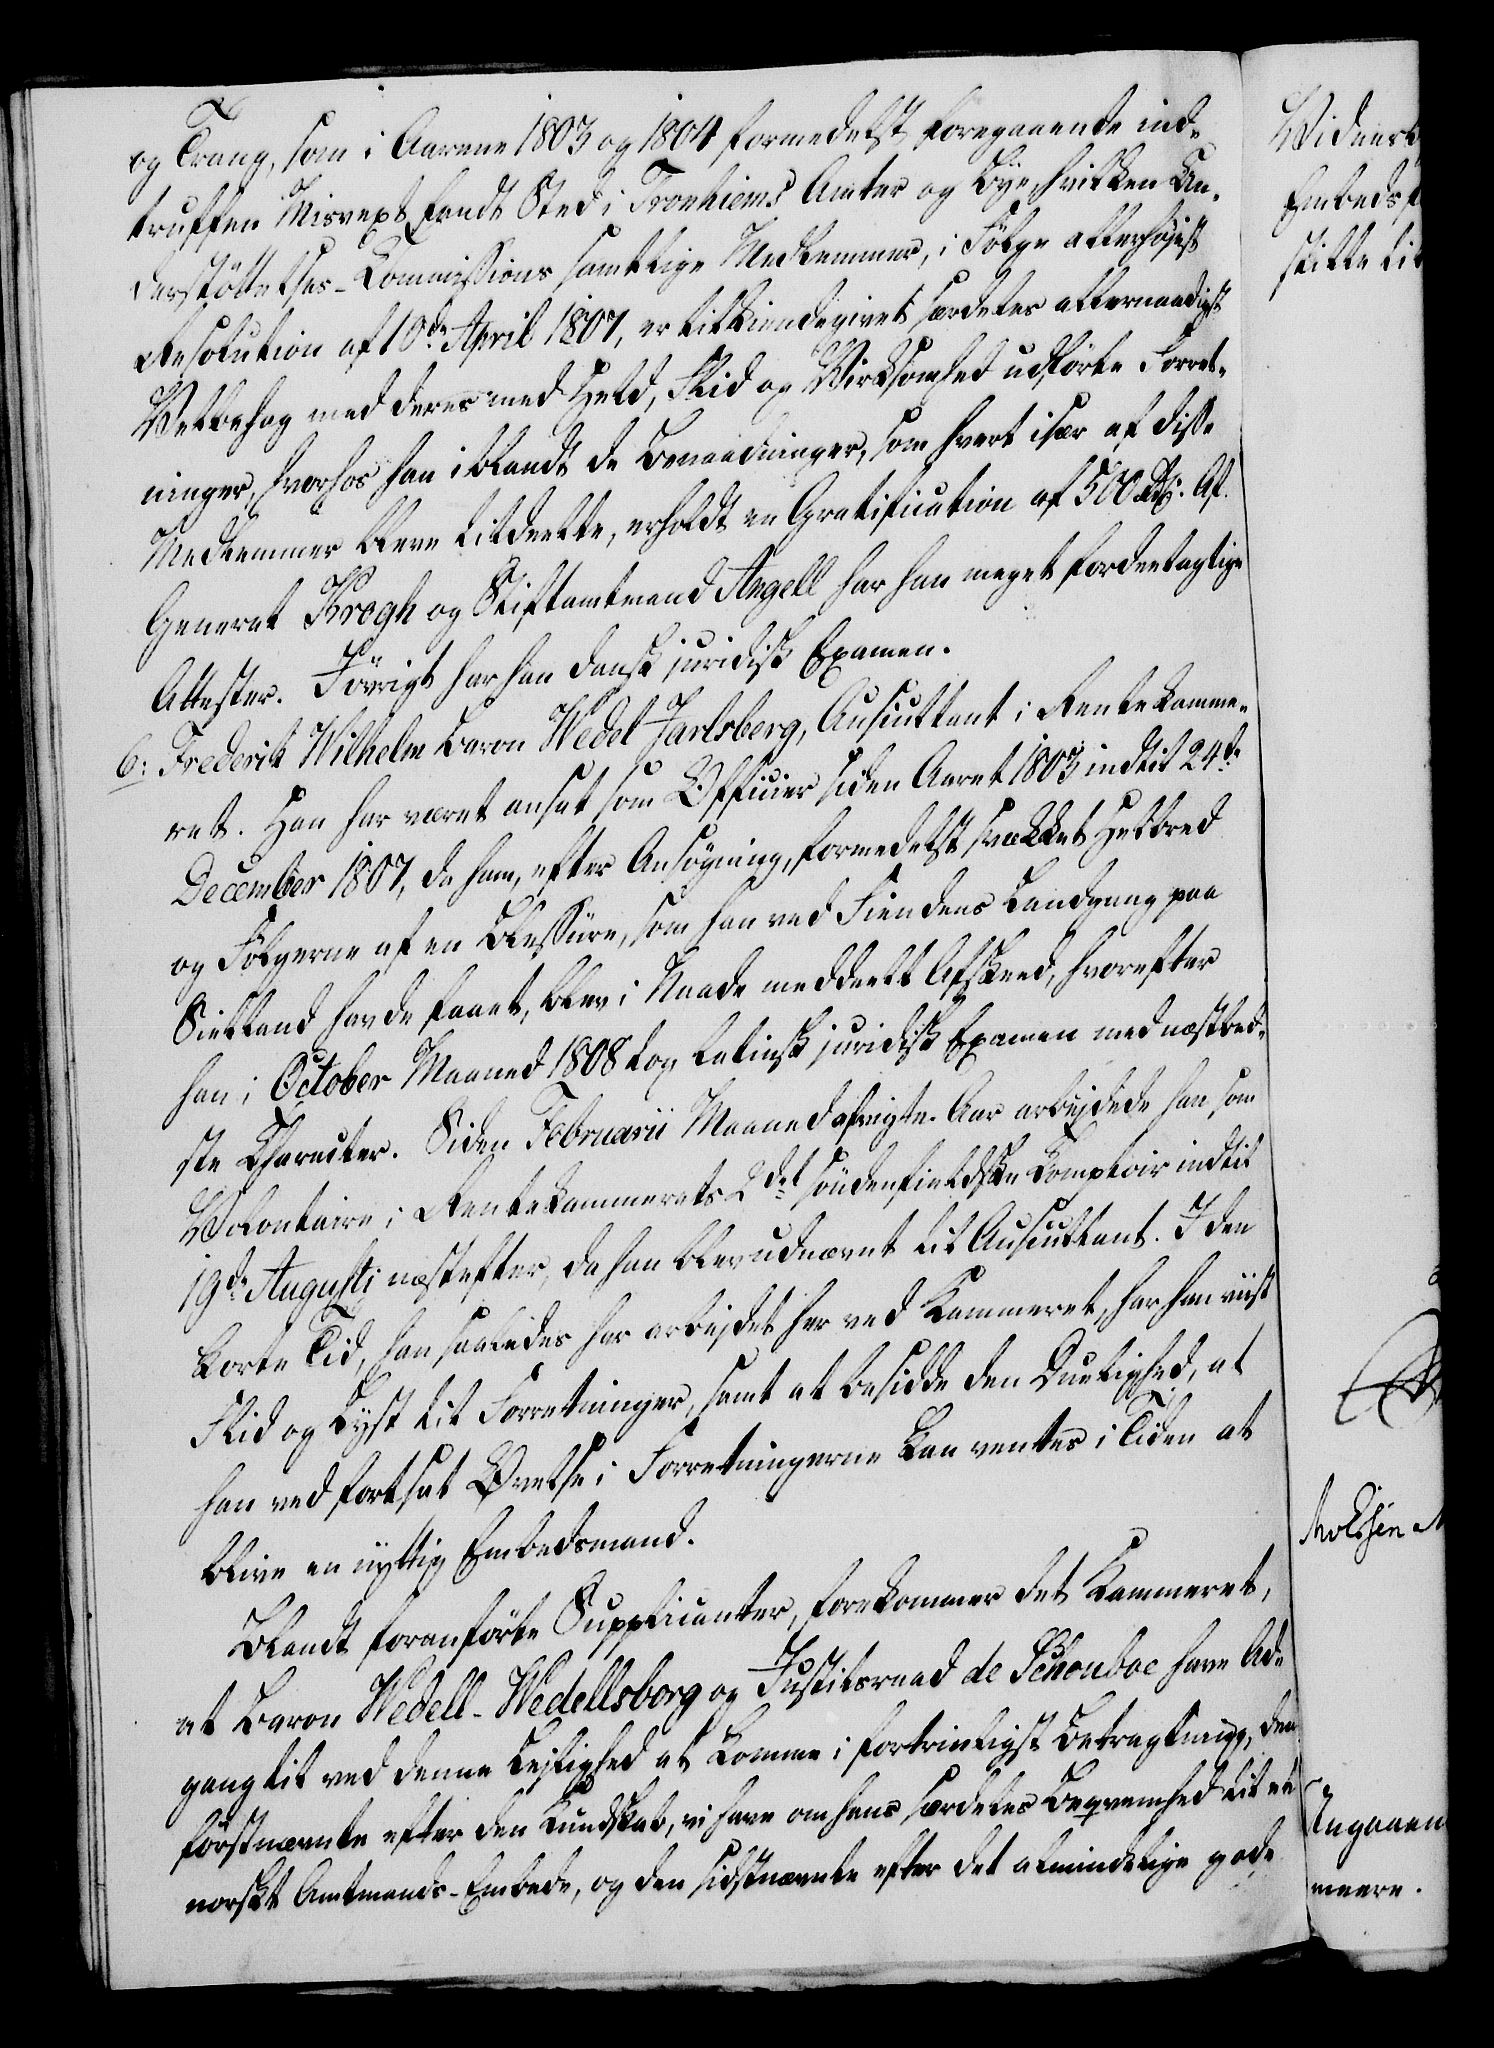 og Trang, som i Aarene 1803 og 1804 formedelst foregaaende ind-
truffen Misvext fandt Sted i Tronhiems Amter og Bye, hvilken Un-
derstöttelses-Commissions samtlige Medlemmer, i Fölge allerhöjest
Resolution af 10de April 1807, er tilkiendegivet særdeles allernaadigst
Velbehag med deres med Held, Flid og Virksomhed udförte Forret-
ninger, hvorhos han iblandt de Benaadninger, som hvert især af disse
Medlemmer bleve tildeelte, erholdt en Gratification af 500 Rd. Af
General Krogh og Stiftamtmand Angell har han meget fordeelagtige
Attester. Iövrigt har han dansk juridisk Examen.
6: Frederik Wilhelm Baron Wedel-Jarlsberg, Auscultant i Rentekamme-
ret. Han har været ansat som Officier siden Aaret 1803 indtil 24de
December 1807, da ham, efter Ansögning, formedelst svækket Helbred
og Fölgerne af en Blessüre, som han ved Fiendens Landgang paa
Siælland havde faaet, blev i Naade meddeelt Afskeed, hvorefter
han i October Maaned 1808 tog latinsk juridisk Examen med næstbed-
ste Character. Siden Februarii Maaned afvigte Aar arbejdede han som
Volontaire i Rentekammerets 2det söndenfieldske Comptoir indtil
19de Augusti næstefter, da han blev udnævnt til Auscultant. I den
korte Tid, han saaledes har arbejdet her ved Kammeret, har han viist
Flid og Lyst til Forretninger, samt at besidde den Duelighed, at
han ved fortsat Övelse i Forretningerne kan ventes i Tiden at
blive en nyttig Embedsmand.
Blandt foranförte Supplicanter, forekommer det Kammeret,
at Baron Wedell-Wedellsborg og Justitsraad de Schouboe have Ad-
gang til ved denne Lejlighed at komme i fortrinligst Betragtning, den
förstnævnte efter den Kundskab, vi have om hans særdeles Beqvemhed til et
norskt Amtmands-Embede, og den sidstnævnte efter det almindelige gode
Embeds
stille til
meere.